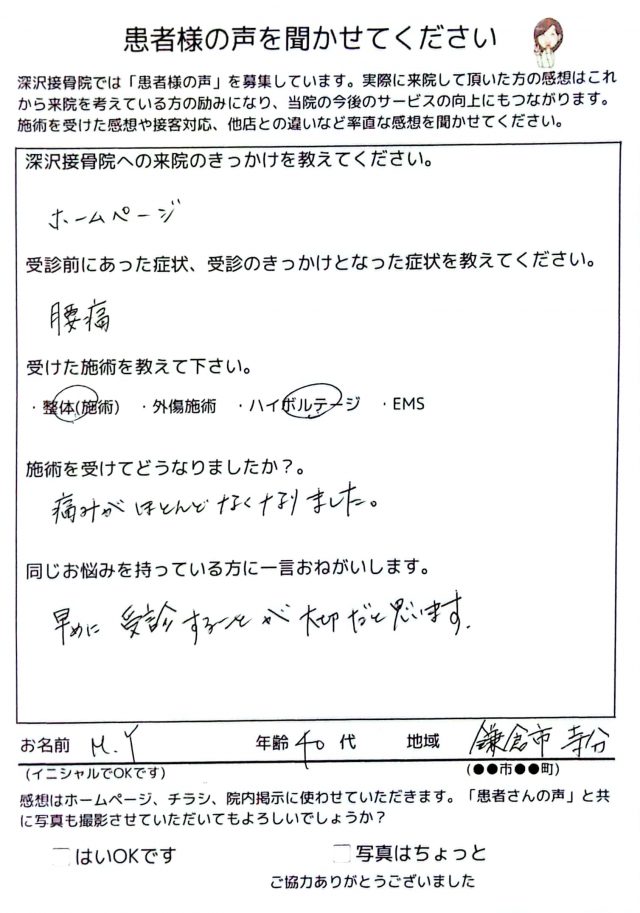 患者様の声を聞かせてください
深沢接骨院では「患者様の声」を募集しています。実際に来院して頂いた方の感想はこれ
から来院を考えている方の励みになり、当院の今後のサービスの向上にもつながります。
施術を受けた感想や接客対応、他店との違いなど率直な感想を聞かせてください。
深沢接骨院への来院のきっかけを教えてください。
ホームページ
受診前にあった症状、受診のきっかけとなった症状を教えてください。
腰痛
受けた施術を教えて下さい。
・整体(施術) ・外傷施術 ・ハイボルテージ ・EMS
施術を受けてどうなりましたか？。
痛みがほとんどなくなりました。
同じお悩みを持っている方に一言おねがいします。
早めに受診することが大切だと思います。
お名前 M.Y 年齢 40 代 地域 鎌倉市寺分
(イニシャルでOKです) (●●市●●町)
感想はホームページ、チラシ、院内掲示に使わせていただきます。「患者さんの声」と共
に写真も撮影させていただいてもよろしいでしょうか？
□はいOKです □写真はちょっと
ご協力ありがとうございました